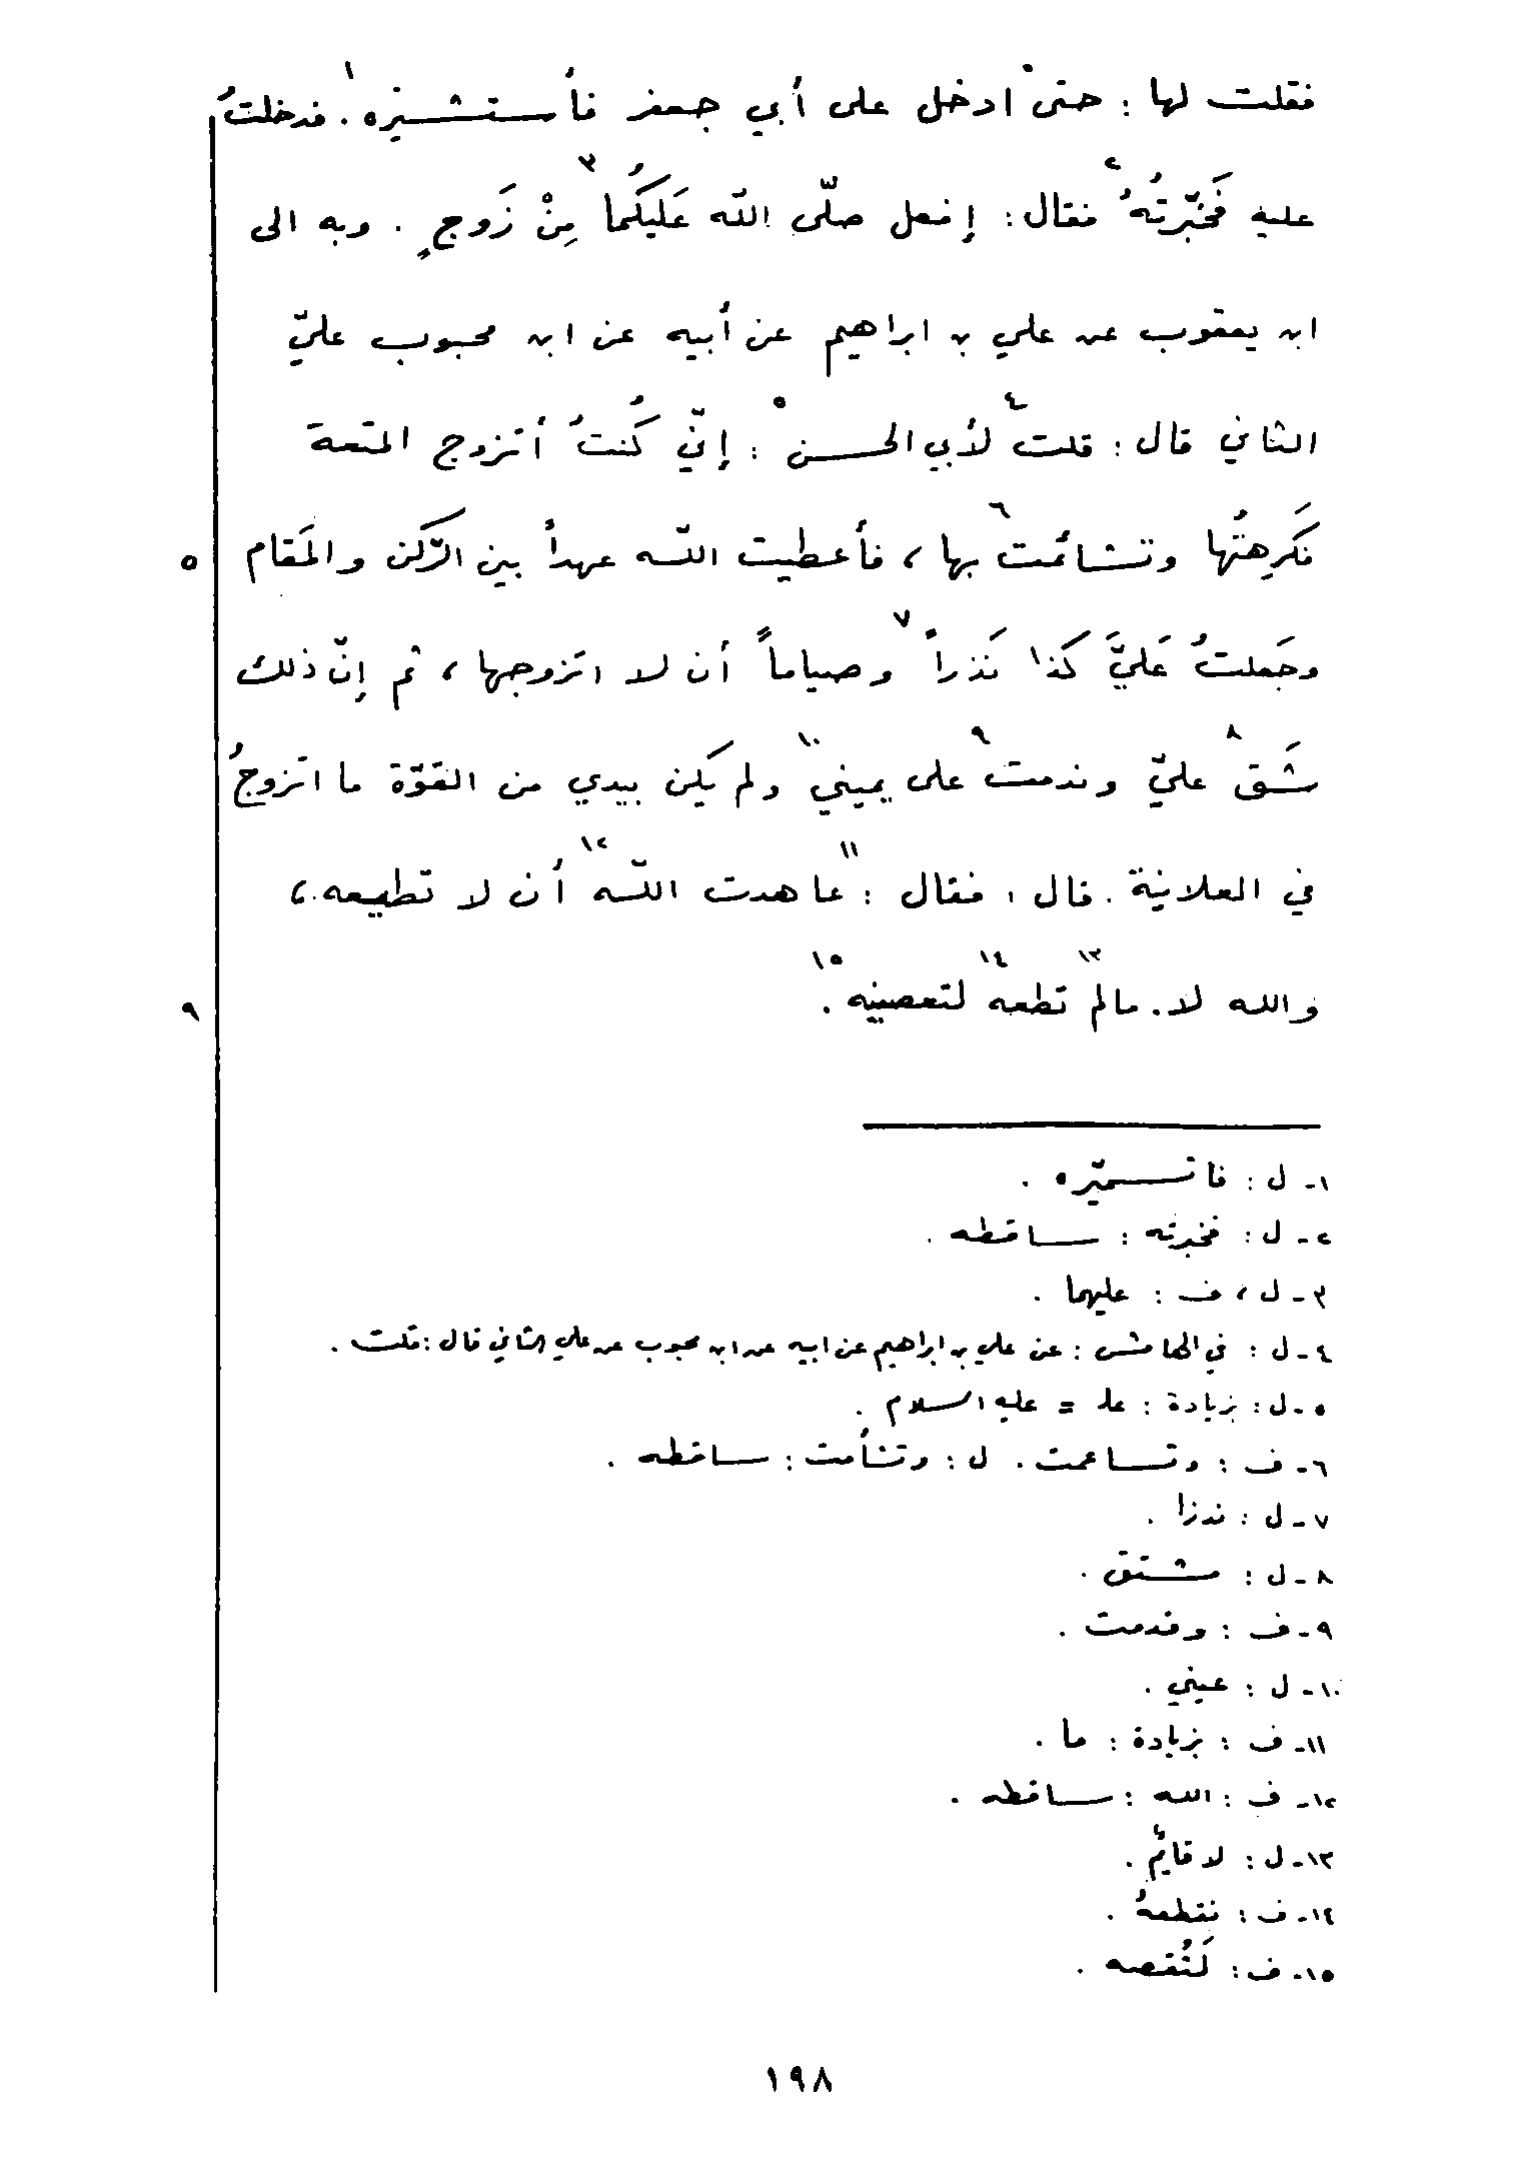 فقلت لها : حتى ادخل على أبي جعفر فأستشيره١ . فدخلتُ
عليه فَخَبّرتُهُ٢ فقال : إفعل صلّى الله عَلَيكُما٣ مِنْ زَوجٍ . وبه الى
ابن يعقوب عن علي بن ابراهيم عن أبيه عن ابن محبوب عليّ
الثاني قال : قلت٤ لأبي الحسن٥ : إنّي كُنتُ أتزوج المتعة
فكَرِهتُها وتشائمت٦ بها ، فأعطيت اللّه عهداً بين الرّكن والمَقام ٥
وجَعلتُ عَليَّ كذا نَذراً٧ وصياماً أن لا اتزوجها ، ثم إنّ ذلك
شَق٨ عليّ وندمت٩ على يميني١٠ ولم يكن بيدي من القوّة ما اتزوجُ
في العلانية . قال : فقال : ١١عاهدت اللّه١٢ أن لا تطيعه ،
والله لا . مالم١٣ تطعه١٤ لتعصينه١٥ . ٩
١- ل : فاتسميّره .
٢- ل : فخبرته : ساقطه .
٣- ل ، ف : عليهما .
٤- ل : في الهامش : عن علي بن ابراهيم عن ابيه عن ابن محبوب عن علي الثاني قال : قلت .
٥- ل : بزيادة : عل = عليه السلام .
٦- ف : وتساعمت . ل : وتشأمت : ساقطه .
٧- ل : ندزا .
٨- ل : مشتق .
٩- ف : وقدمت .
١٠- ل : عيني .
١١- ف : بزيادة : ما .
١٢- ف : الله : ساقطه .
١٣- ل : لا قايم .
١٤- ف : نقطعهُ .
١٥- ف : لَنُقصه .
١٩٨